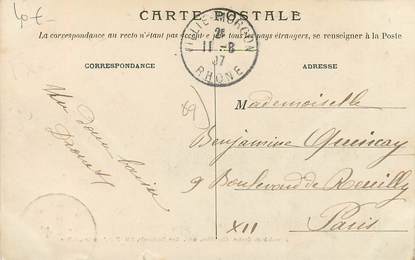 40€
CARTE POSTALE
La correspondance au recto n'étant pas acceptée par tous les pays étrangers, se renseigner à la Poste
VILLIÉ-MORGON
11 -8
07
RHÔNE
CORRESPONDANCE
ADRESSE
(69)
Un doux baiser
Mademoiselle
Benjamine Quincay
9 Boulevard de Reuilly
Paris
XII